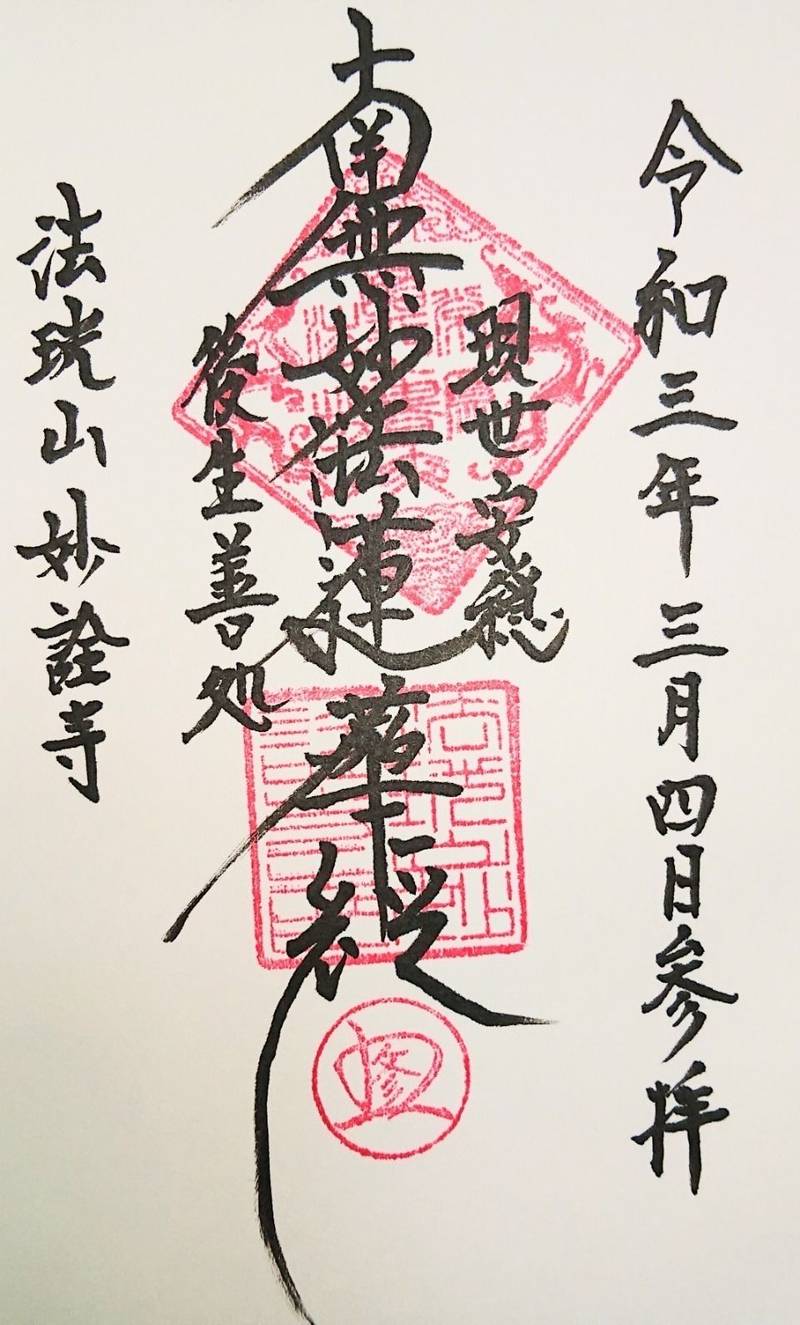 令和三年三月四日参拝
現世安穏
南無妙法蓮華経
後生善処
法珖山妙詮寺